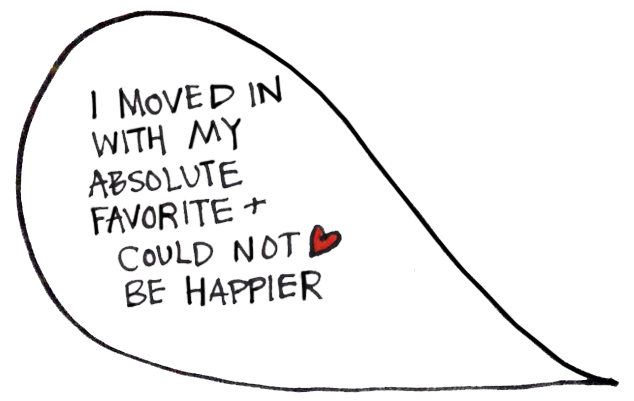 I MOVED IN
WITH MY
ABSOLUTE
FAVORITE +
COULD NOT
BE HAPPIER